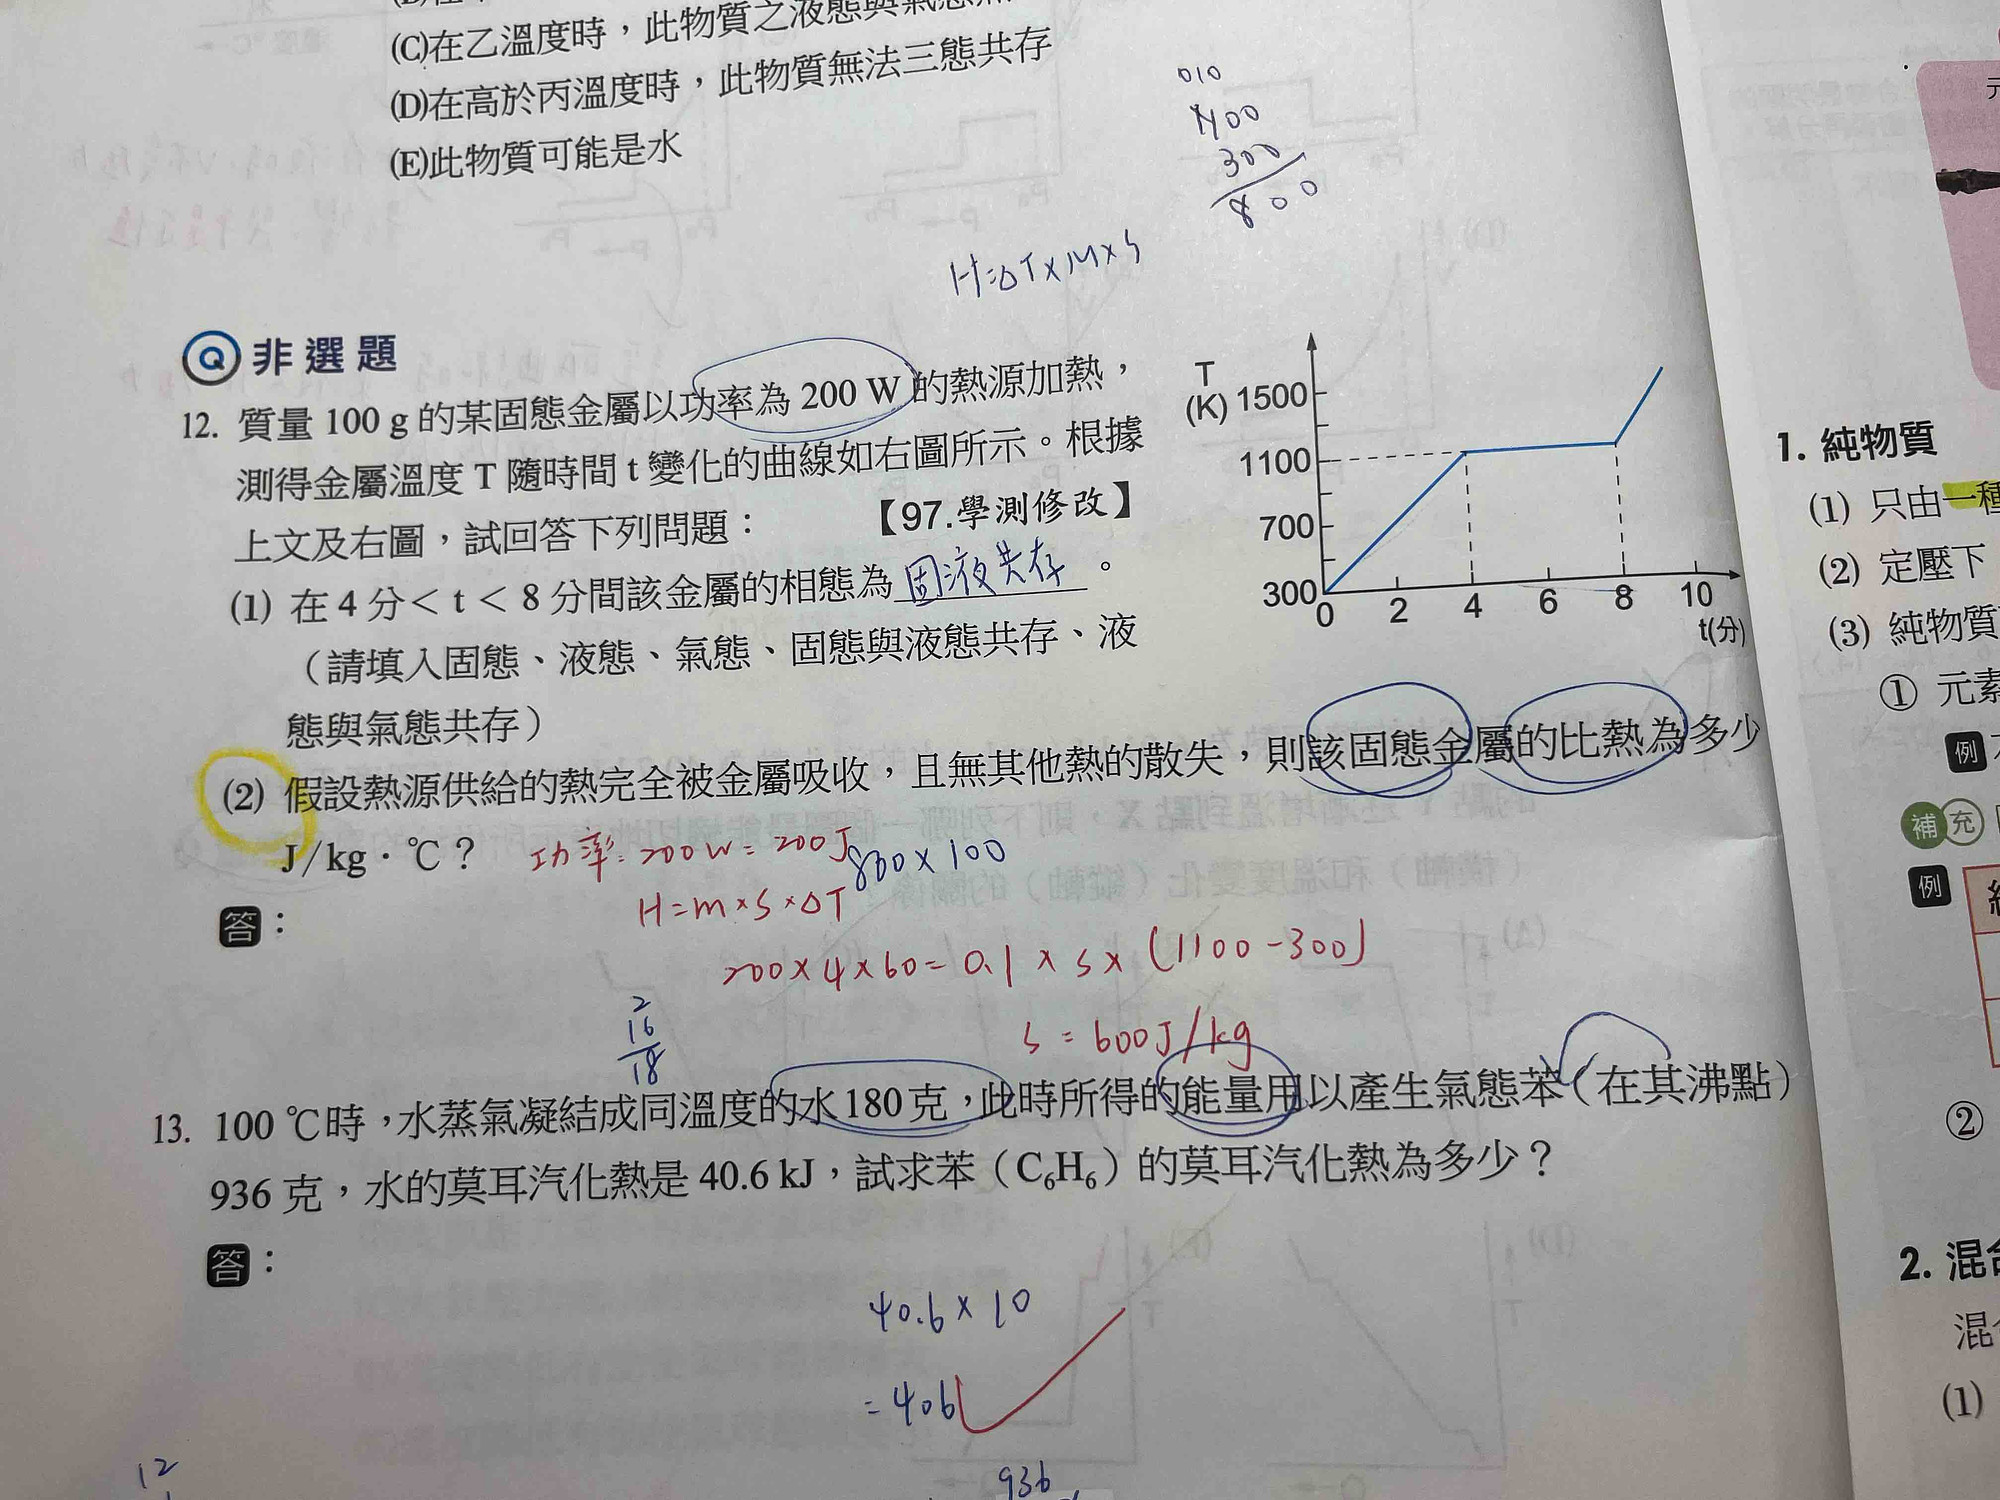 (C)在乙溫度時，此物質之液態與氣態
(D)在高於丙溫度時，此物質無法三態共存
(E)此物質可能是水
010
1100
300
800
H=ΔT×M×S
Q 非選題
12. 質量 100 g 的某固態金屬以功率為 200 W 的熱源加熱，
測得金屬溫度 T 隨時間 t 變化的曲線如右圖所示。根據
上文及右圖，試回答下列問題： 【97.學測修改】
(1) 在 4 分＜ t ＜ 8 分間該金屬的相態為 固液共存 。
（請填入固態、液態、氣態、固態與液態共存、液
態與氣態共存）
T
(K) 1500
1100
700
300
0 2 4 6 8 10
t(分)
(2) 假設熱源供給的熱完全被金屬吸收，且無其他熱的散失，則該固態金屬的比熱為多少
J/kg・℃？
功率=200W=200J
800×100
答：
H=m×S×ΔT
200×4×60=0.1×S×(1100-300)
S=600J/kg
2
16
18
13. 100 ℃時，水蒸氣凝結成同溫度的水 180 克，此時所得的能量用以產生氣態苯（在其沸點）
936 克，水的莫耳汽化熱是 40.6 kJ，試求苯（C₆H₆）的莫耳汽化熱為多少？
答：
40.6×10
=406
12
936
元
1. 純物質
(1) 只由一種
(2) 定壓下
(3) 純物質
① 元素
例
補充
例
②
2. 混合
混
(1)